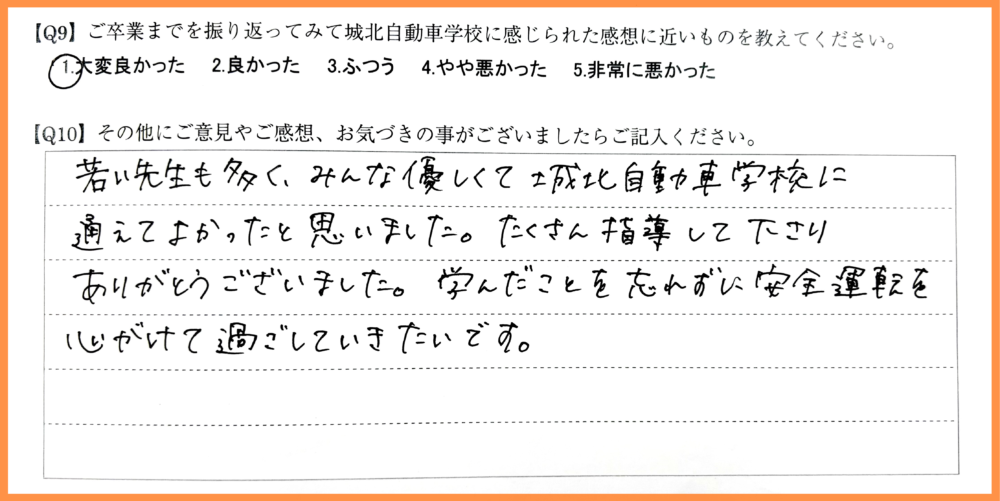 【Q9】ご卒業までを振り返ってみて城北自動車学校に感じられた感想に近いものを教えてください。
1.大変良かった 2.良かった 3.ふつう 4.やや悪かった 5.非常に悪かった
【Q10】その他にご意見やご感想、お気づきの事がございましたらご記入ください。
若い先生も多く、みんな優しくて城北自動車学校に
通えてよかったと思いました。たくさん指導して下さり
ありがとうございました。学んだことを忘れずに安全運転を
心がけて過ごしていきたいです。